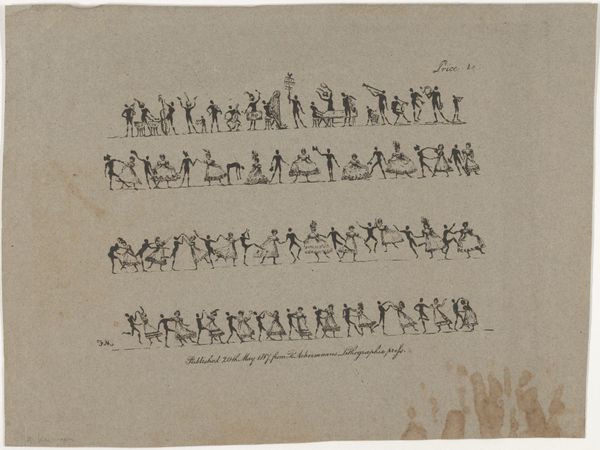 Price. 1s
J.M.
Published 20th May 1817 from R. Ackermanns Lithographic press.